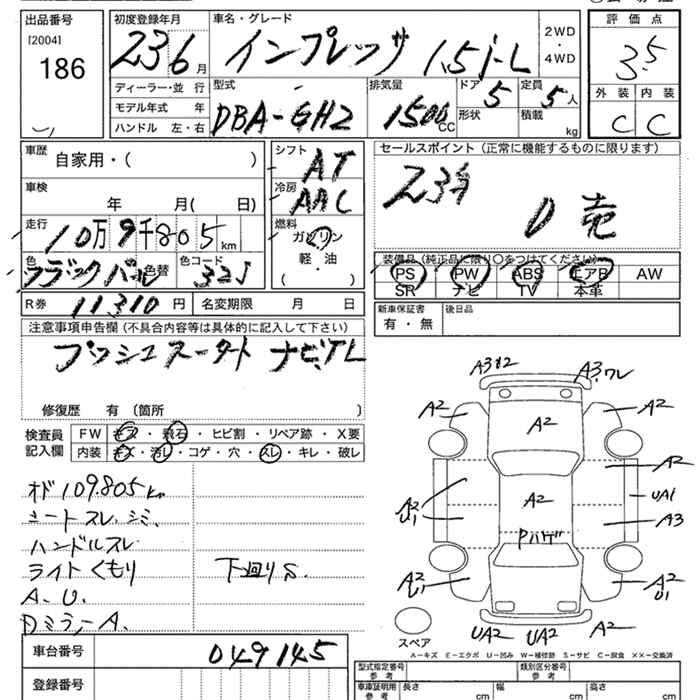 出品番号
[2004]
186
初度登録年月
23 6 月
車名・グレード
インプレッサ 1.5 i-L
2WD
・
4WD
評価点
3.5
外装 内装
C C
ディーラー・並行
モデル年式 年
ハンドル 左・右
型式
DBA-GH2
排気量
1500 CC
ドア 5
形状
定員 5 人
積載 kg
車歴
自家用・( )
車検
年 月( 日)
走行
10万9千805 km
色
色替
色コード
32J
シフト
AT
冷房
AAC
燃料
ガソリン
軽・油
( )
セールスポイント(正常に機能するものに限ります)
23年
装備品(純正品に限り○をつけてください)
PS PW ABS エアB AW
SR ナビ TV 本革
R券 11310 円
名変期限 月 日
新車保証書
有・無
後日品
注意事項申告欄(不具合内容等は具体的に記入して下さい)
プッシュスタート ナビ,TL
修復歴 有 (箇所 )
検査員
記入欄
FW キズ・飛石・ヒビ割・リペア跡・X要
内装 キズ・汚レ・コゲ・穴・スレ・キレ・破レ
オド109.805km
シートスレ.シミ.
ハンドルスレ
ライトくもり
下廻りS.
A.U.
DミラーA.
車台番号
049145
登録番号
A3 ワレ
A2
A2
A2
A2
UA1
A2
U1
A2
A3
Pハゲ
A2
U1
A2
U1
UA2
UA2
A2
スペア
A－キズ E－エクボ U－凹み W－補修跡 S－サビ C－腐食 XX－交換済
型式指定番号
参考
類別区分番号
参考
車庫証明用
参考
長さ cm
幅 cm
高さ cm